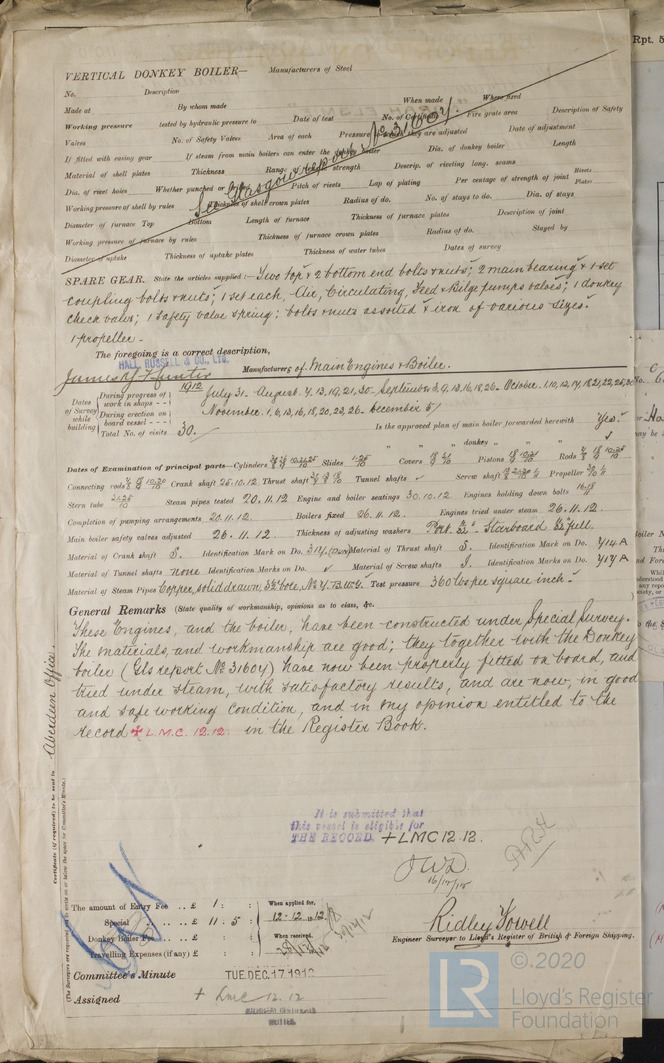 Rpt. 5
VERTICAL DONKEY BOILER— Manufacturers of Steel
No. Description
Made at By whom made When made Where fixed
Working pressure tested by hydraulic pressure to Date of test No. of Certificate Fire grate area Description of Safety
Valves No. of Safety Valves Area of each Pressure to which they are adjusted Date of adjustment
If fitted with easing gear If steam from main boilers can enter the donkey boiler Dia. of donkey boiler Length
Material of shell plates Thickness Range of tensile strength Descrip. of riveting long. seams
Dia. of rivet holes Whether punched or drilled Pitch of rivets Lap of plating Per centage of strength of joint Rivets Plates
Working pressure of shell by rules Thickness of shell crown plates Radius of do. No. of stays to do. Dia. of stays
Diameter of furnace Top Bottom Length of furnace Thickness of furnace plates Description of joint
Working pressure of furnace by rules Thickness of furnace crown plates Radius of do. Stayed by
Diameter of uptake Thickness of uptake plates Thickness of water tubes Dates of survey
See Glasgow report No 31604.
SPARE GEAR. State the articles supplied:— Two top & 2 bottom end bolts & nuts; 2 main bearing & 1 set
coupling bolts & nuts; 1 set each, Air, Circulating, Feed & Bilge pumps valves; 1 donkey
check valve; 1 safety valve spring; bolts & nuts assorted & iron of various sizes.
1 propeller.
The foregoing is a correct description,
HALL, RUSSELL & CO., LTD.
James G Hunter Manufacturers of Main Engines & Boiler.
1912
Dates of Survey while building
During progress of work in shops - - July 31. August 7, 13, 19, 21, 30. September 3, 9, 13, 16, 18, 26. October 1, 10, 12, 17, 18, 21, 22, 25, 30
During erection on board vessel - - - November 1, 6, 13, 16, 18, 20, 23, 26. December 5
Total No. of visits 30. Is the approved plan of main boiler forwarded herewith Yes.
" " " donkey " "
Dates of Examination of principal parts—Cylinders Slides Covers Pistons Rods
Connecting rods Crank shaft 25.10.12 Thrust shaft Tunnel shafts Screw shaft Propeller
Stern tube Steam pipes tested 20.11.12 Engine and boiler seatings 30.10.12 Engines holding down bolts
Completion of pumping arrangements 20.11.12. Boilers fixed 26.11.12. Engines tried under steam 26.11.12.
Main boiler safety valves adjusted 26.11.12 Thickness of adjusting washers Port Starboard
Material of Crank shaft S. Identification Mark on Do. Material of Thrust shaft S. Identification Mark on Do. 414A
Material of Tunnel shafts none Identification Marks on Do. Material of Screw shafts Identification Marks on Do. 417A
Material of Steam Pipes Copper, solid drawn, 3½" bore, No 4. B.W.G. Test pressure 360 lbs per square inch.
General Remarks (State quality of workmanship, opinions as to class, &c.
These Engines, and the boiler, have been constructed under Special Survey.
The materials and workmanship are good; they together with the Donkey
boiler (Gls report No 31604) have now been properly fitted on board, and
tried under steam, with satisfactory results, and are now, in good
and safe working condition, and in my opinion entitled to the
record + L.M.C. 12.12. in the Register Book.
Certificate (if required) to be sent to Aberdeen Office.
(The Surveyors are requested not to write on or below the space for Committee's Minute.)
It is submitted that
this vessel is eligible for
THE RECORD. + LMC 12.12.
JWD
16/12/12
The amount of Entry Fee .. £ 1 : When applied for,
Special .. .. £ 11 . 5 : 12.12.1912
Donkey Boiler Fee .. .. £ When received,
Travelling Expenses (if any) £
Ridley Howell
Engineer Surveyor to Lloyd's Register of British & Foreign Shipping.
Committee's Minute TUE. DEC. 17 1912
Assigned + LMC 12.12
LR
© 2020
Lloyd's Register
Foundation